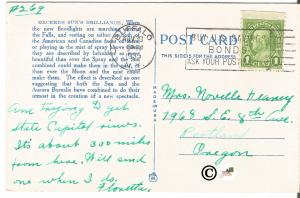 #269
EXCEEDS SUN'S BRILLIANCE. When
the new floodlights are marched across
the Falls, and vesting on either the crest of
the American and Canadian Falls of Niagara
or playing in the mist of spray above them,
they are described by beholders as more
beautiful than ever the Spray and the Sun
combined could make in the noontide,
or than ever the Moon and the mist could
make. The effect is also described as
suggestive, that both the Sun and the
Aurora Borealis have combined to do their
utmost in the creation of a new spectacle.
am trying to get
State Capitol views.
It's about 300 miles
from here. Will send
one when I do.
Floretta.
BUFFALO
POST CARD
THIS SIDE IS FOR THE ADDRESS
BUY
BOND
ASK YOUR POST
1
Mrs. Novelle Heaney
2968 S.E. 8th Ave.
Portland
Oregon